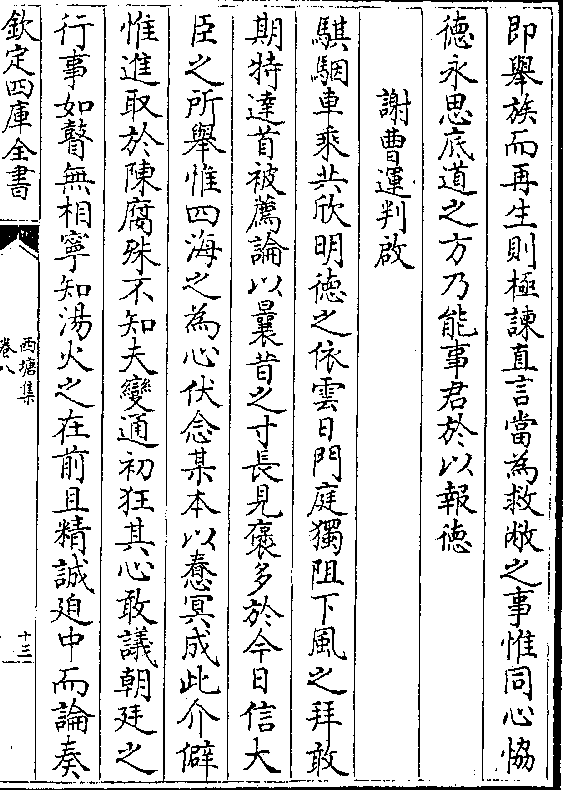 即舉族而再生則極諫直言當為救敝之事惟同心恊
徳永思底道之方乃能事君於以報徳
謝曹運判啟
騏駰車乘共欣明徳之依雲日門庭獨阻下風之拜敢
期特達首被薦論以曩昔之寸長見褒多於今日信大
臣之所舉惟四海之為心伏念某本以惷冥成此介僻
惟進取於陳腐殊不知夫變通初狂其心敢議朝廷之
行事如瞽無相寧知湯火之在前且精誠廹中而論奏
欽定四庫全書
西塘集
卷八
十三